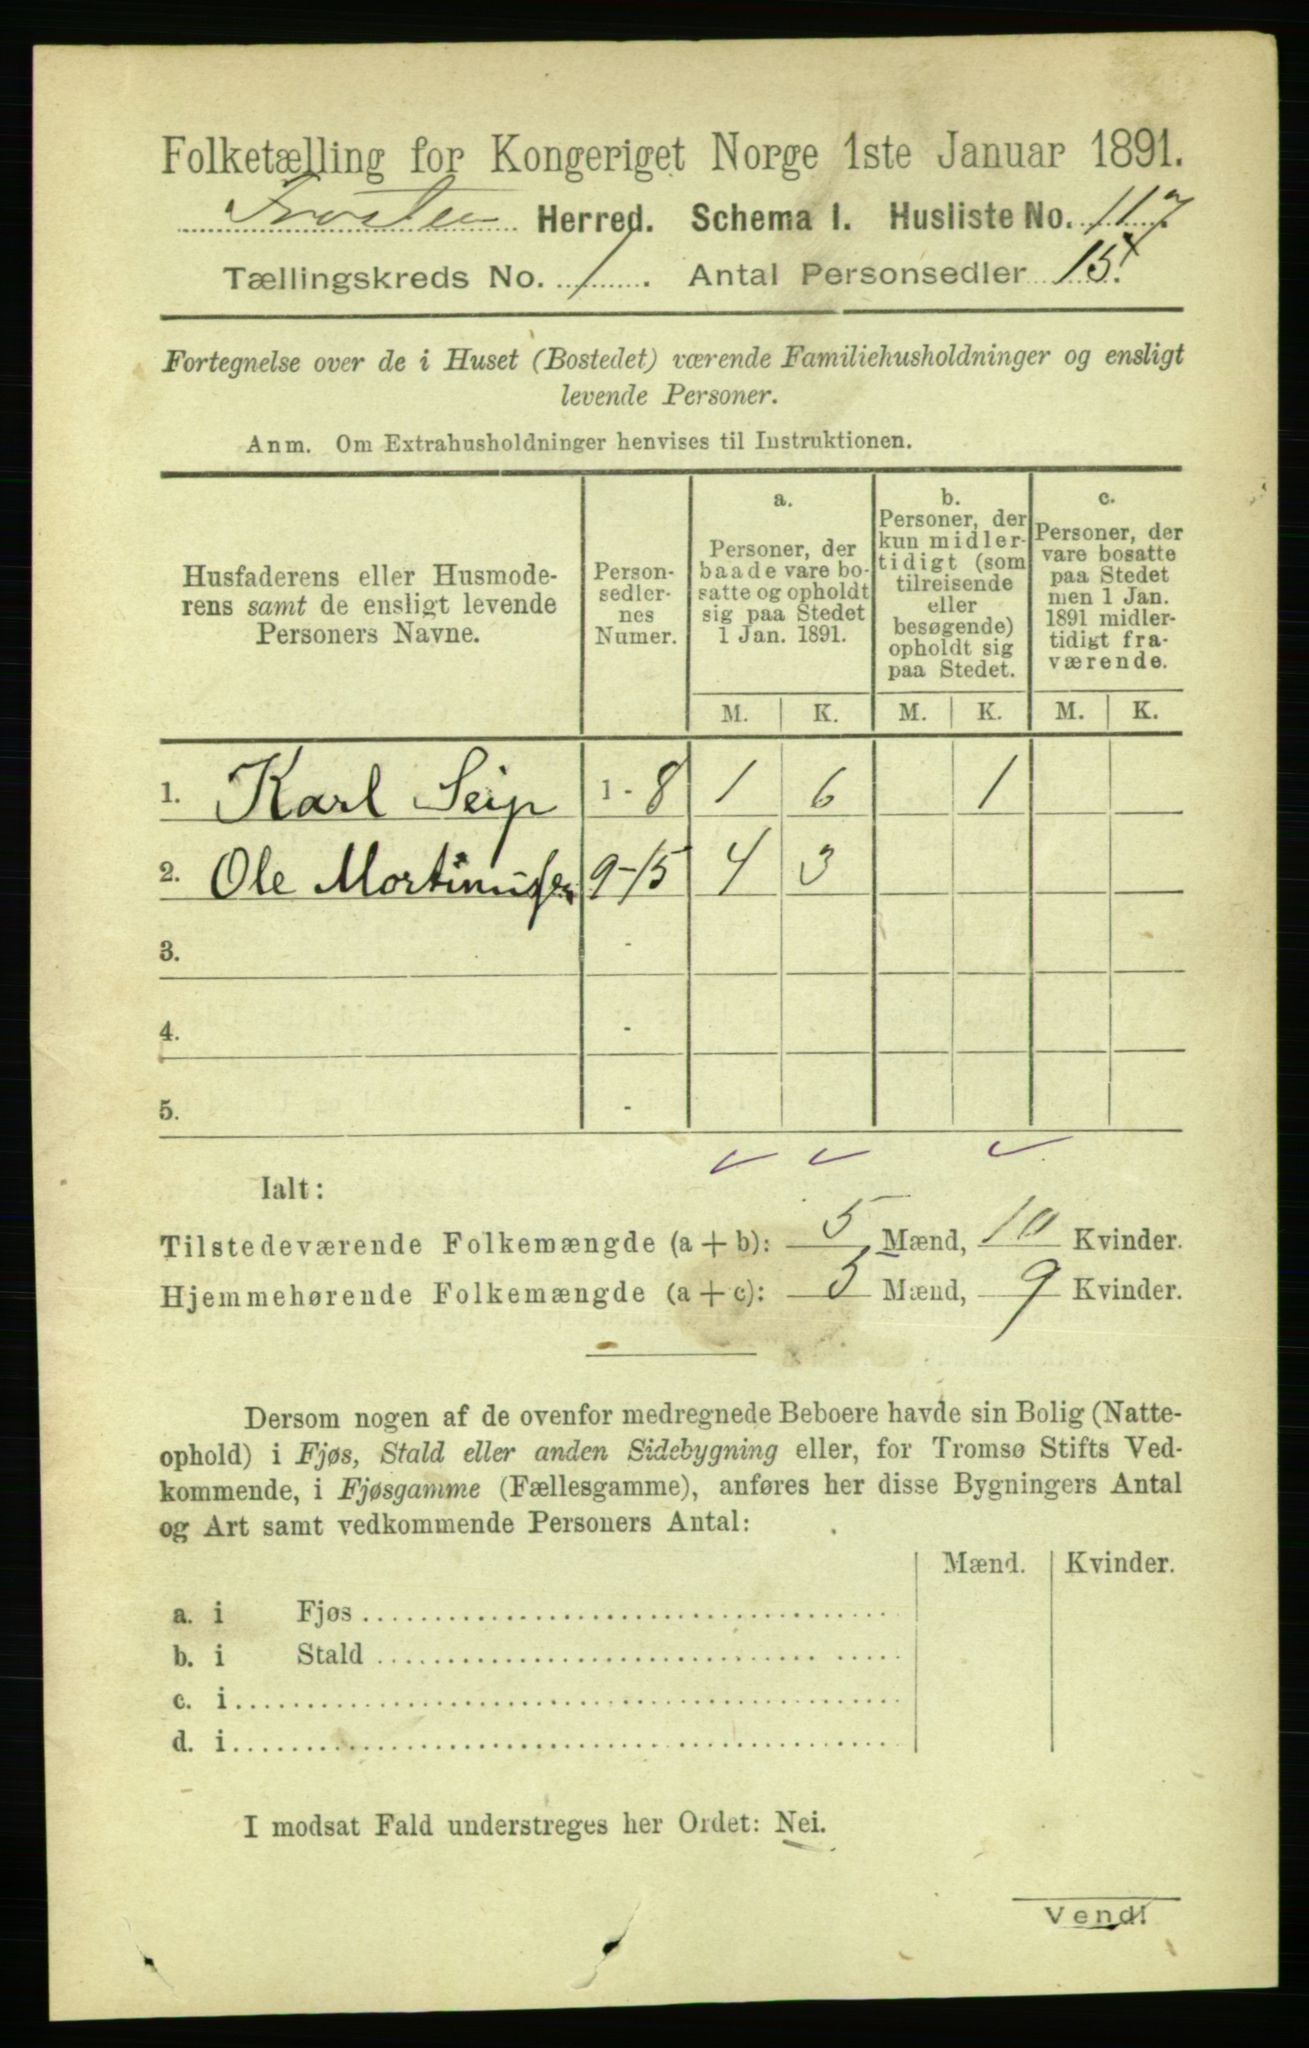 Folketælling for Kongeriget Norge 1ste Januar 1891.
Frosten Herred. Schema 1. Husliste No. 117
Tællingskreds No. 1. Antal Personsedler 15.
Fortegnelse over de i Huset (Bostedet) værende Familiehusholdninger og ensligt
levende Personer.
Anm. Om Extrahusholdninger henvises til Instruktionen.
Husfaderens eller Husmode-
rens samt de ensligt levende
Personers Navne.
Person-
sedler-
nes
Numer.
a.
Personer, der
baade vare bo-
satte og opholdt
sig paa Stedet
1 Jan. 1891.
b.
Personer, der
kun midler-
tidigt (som
tilreisende
eller
besøgende)
opholdt sig
paa Stedet.
c.
Personer, der
vare bosatte
paa Stedet
men 1 Jan.
1891 midler-
tidigt fra-
værende.
M. K. M. K. M. K.
1. Karl Seip 1 - 8 1 6 1
2. Ole Mortinusen 9-15 4 3
3. -
4. -
5. -
Ialt:
Tilstedeværende Folkemængde (a + b): 5 Mænd, 10 Kvinder.
Hjemmehørende Folkemængde (a + c): 5 Mænd, 9 Kvinder.
Dersom nogen af de ovenfor medregnede Beboere havde sin Bolig (Natte-
ophold) i Fjøs, Stald eller anden Sidebygning eller, for Tromsø Stifts Ved-
kommende, i Fjøsgamme (Fællesgamme), anføres her disse Bygningers Antal
og Art samt vedkommende Personers Antal:
Mænd. Kvinder.
a. i Fjøs
b. i Stald
c. i
d. i
I modsat Fald understreges her Ordet: Nei.
Vend!